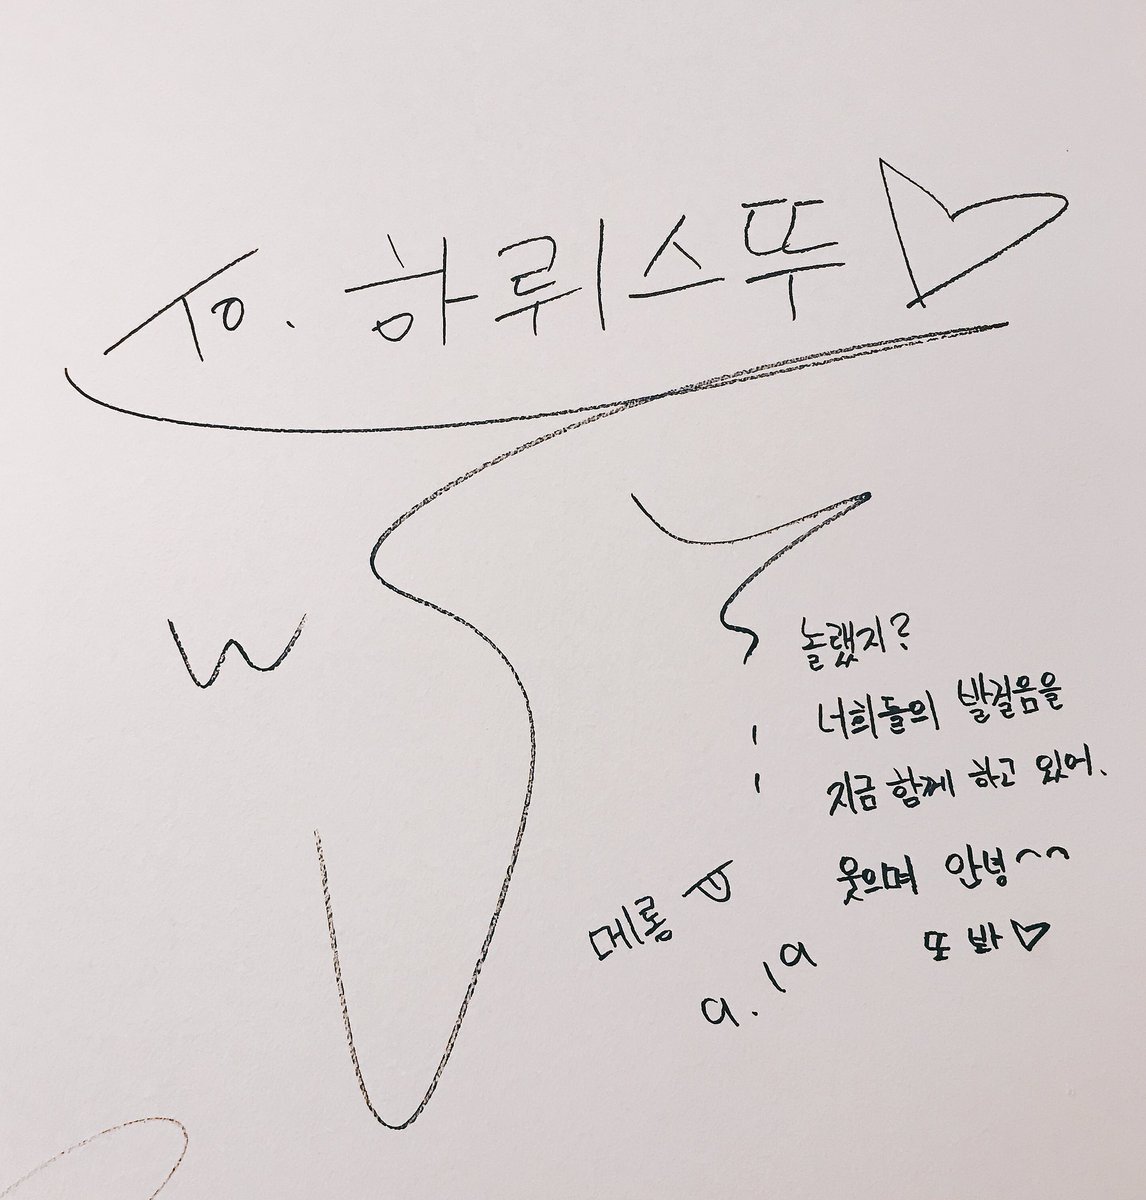 To. 하뤼스뚜♡
놀랬지?
너희들의 발걸음을
지금 함께 하고 있어.
웃으며 안녕^^
또 봐♡
메롱
9.19